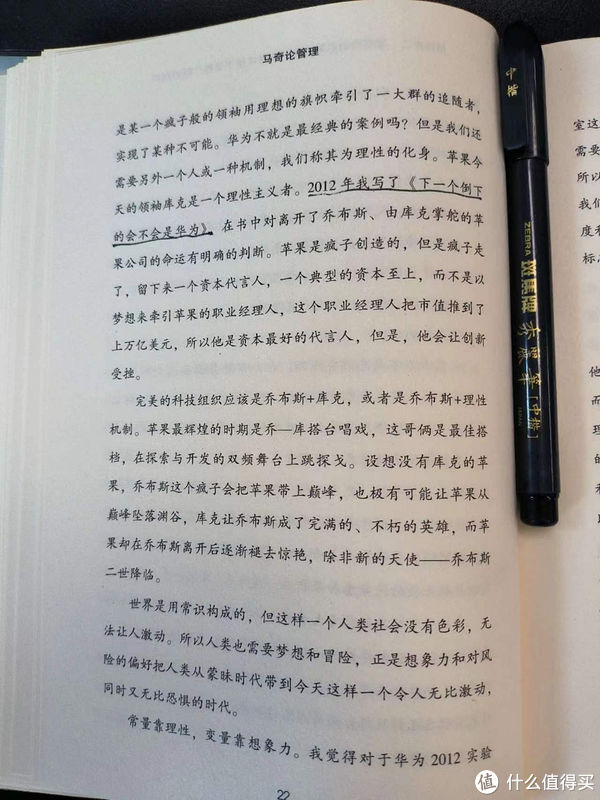 马奇论管理
是某一个疯子般的领袖用理想的旗帜牵引了一大群的追随者，
实现了某种不可能。华为不就是最经典的案例吗？但是我们还
需要另外一个人或一种机制，我们称其为理性的化身。苹果今
天的领袖库克是一个理性主义者。2012年我写了《下一个倒下
的会不会是华为》，在书中对离开了乔布斯、由库克掌舵的苹
果公司的命运有明确的判断。苹果是疯子创造的，但是疯子走
了，留下来一个资本代言人，一个典型的资本至上，而不是以
梦想来牵引苹果的职业经理人，这个职业经理人把市值推到了
上万亿美元，所以他是资本最好的代言人，但是，他会让创新
受挫。
完美的科技组织应该是乔布斯+库克，或者是乔布斯+理性
机制。苹果最辉煌的时期是乔—库搭台唱戏，这哥俩是最佳搭
档，在探索与开发的双频舞台上跳探戈。设想没有库克的苹
果，乔布斯这个疯子会把苹果带上巅峰，也极有可能让苹果从
巅峰坠落渊谷，库克让乔布斯成了完满的、不朽的英雄，而苹
果却在乔布斯离开后逐渐褪去惊艳，除非新的天使——乔布斯
二世降临。
世界是用常识构成的，但这样一个人类社会没有色彩，无
法让人激动。所以人类也需要梦想和冒险，正是想象力和对风
险的偏好把人类从蒙昧时代带到今天这样一个令人无比激动，
同时又无比恐惧的时代。
常量靠理性，变量靠想象力。我觉得对于华为2012实验
22
中楷
ZEBRA 斑马牌 秀丽笔 [中楷]
JAPAN
室这
需要
所以
我们
度和
标点
他
而
理
的
值 什么值得买